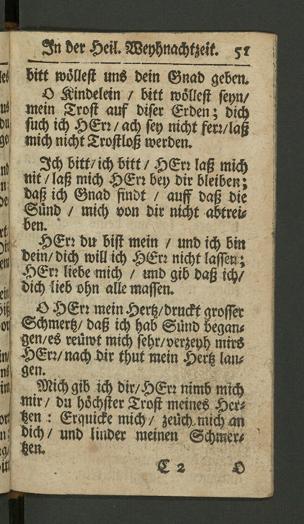 In der Heil. Weyhnachtzeit. 51
bitt wöllest uns dein Gnad geben.
O Kindelein / bitt wöllest seyn/
mein Trost auf diser Erden; dich
such ich HErr/ ach sey nicht ferr/laß
mich nicht Trostloß werden.
Ich bitt/ich bitt / HErr laß mich
nit/laß mich HErr bey dir bleiben;
daß ich Gnad findt / auff daß die
Sünd / mich von dir nicht abtrei-
ben.
HErr du bist mein / und ich bin
dein/dich will ich HErr nicht lassen;
HErr liebe mich / und gib daß ich/
dich lieb ohn alle massen.
O HErr mein Hertz/druckt grosser
Schmertz/daß ich hab Sünd began-
gen/es reüwt mich sehr/verzeyh mirs
HErr/nach dir thut mein Hertz lan-
gen.
Mich gib ich dir/HErr nimb mich
mir/ du höchster Trost meines Her-
tzen : Erquicke mich / zeüch mich an
dich/ und linder meinen Schmer-
tzen.
C 2 O